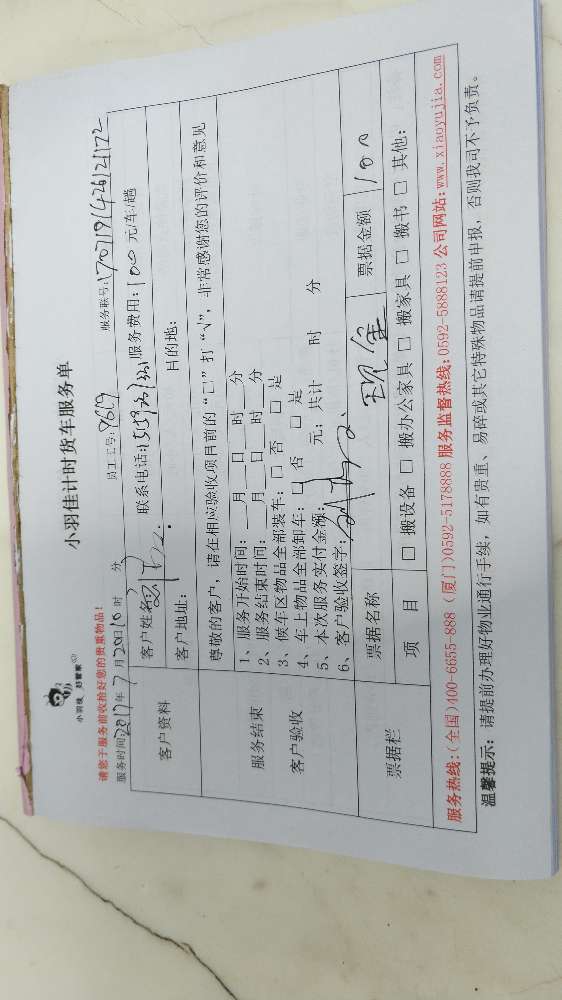 小羽佳 好管家
小羽佳计时货车服务单
请您于服务前收拾好您的贵重物品!
服务时间2017年7月20日10时 分 员工工号:9619 服务联号:170719142612122
客户资料
客户姓名: 联系电话: 服务费用:100元/车/趟
客户地址: 目的地:
服务结束
客户验收
尊敬的客户,请在相应验收项目前的“□”打“√”,非常感谢您的评价和意见
1、服务开始时间: 月 日 时 分
2、服务结束时间: 月 日 时 分
3、候车区物品全部装车:□ 否 □ 是
4、车上物品全部卸车:□ 否 □ 是
5、本次服务实付金额: 元;共计 时 分
6、客户验收签字:
票据栏
票据名称 现金 票据金额 100
项 目 □ 搬设备 □ 搬办公家具 □ 搬家具 □ 搬书 □ 其他:
服务热线:(全国)400-6655-888 (厦门)0592-5178888 服务监督热线:0592-5888123 公司网站:www.xiaoyujia.com
温馨提示: 请提前办理好物业通行手续,如有贵重、易碎或其它特殊物品请提前申报,否则我司不予负责。